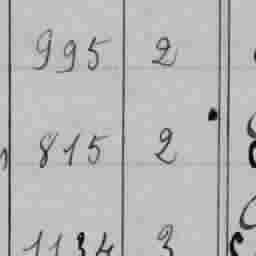 995 2
815 2
1134 3